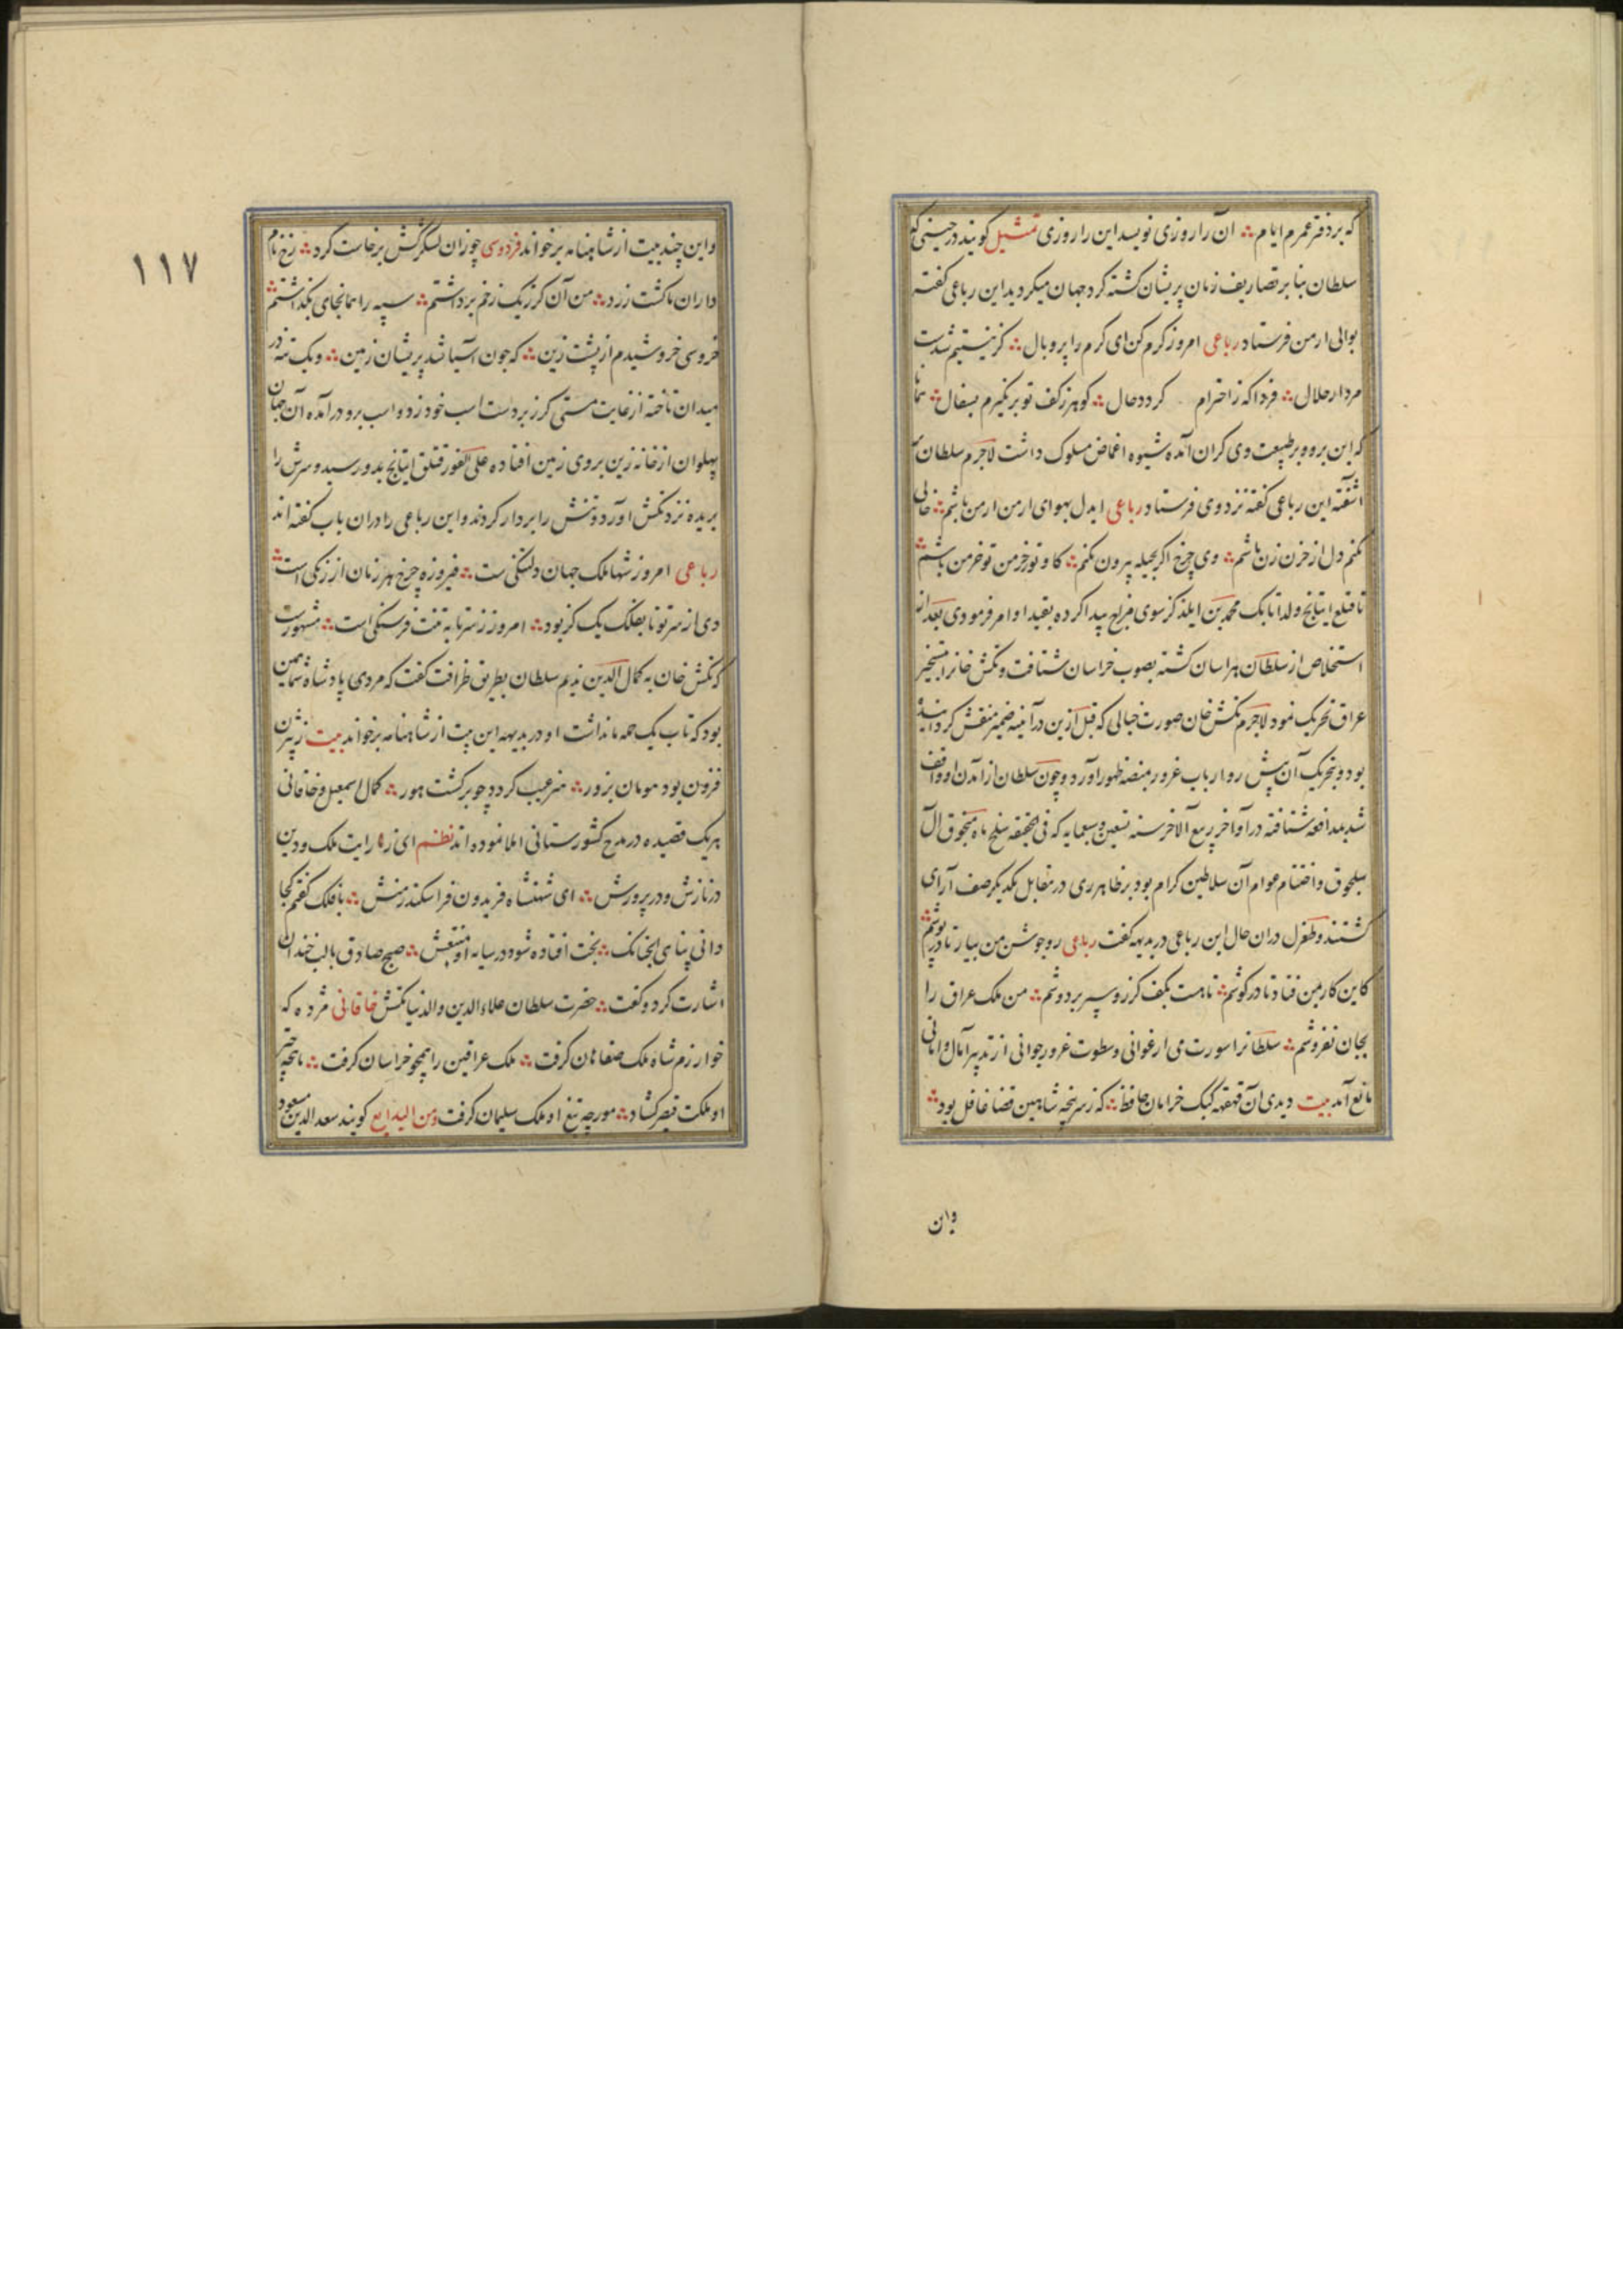 که بر دفتر عمرم ایام ؞ ان را روزی نویسد این را روزی تمثیل کویند در حینی که
سلطان بنا بر تصاریف زمان پریشان کشته کرد جهان میکردید این رباعی کفته
بوالی ارمن فرستاد رباعی امروز کرم کن ای کرم را پر و بال ؞ کز نیستیم شدست
مردار حلال ؞ فردا که ز اخترام کردد حال ؞ کوهر ز کف تو برنکیرم بسفال ؞
که این بر وی بر طبیعت وی کران آمده شیوه اغماض مسلوک داشت لاجرم سلطان
اشفته این رباعی کفته نزد وی فرستاد رباعی ایدل بهوای ارمن ار من باشم ؞ خالی
نکنم دل از حزن زن باشم ؞ وی چرخ اکر بحیله بیرون نکنم ؞ کاو تو ز خرمن تو خر من باشم ؞
تا قتلغ اینانج ولد اتابک محمد بن ایلدکز سوی مزاج پیدا کرده بقید او امر فرمود وی بعد از
استخلاص از سلطان هراسان کشته بصوب خراسان شتافت و تکش خانرا بتسخیر
عراق تحریک نمود لاجرم تکش خان صورت خیالی که قبل ازین در آینه ضمیر منقش کردانیده
بود و بتحریک آن پیش رو ارباب غرور بمنصه ظهور اورد و چون سلطان از آمدن او واقف
شد بمدافعه شتافته در آواخر ربیع الآخر سنه تسعین و خمسمایه که فی الحقیقه سلخ ماه منجوق آل
سلجوق و اختتام عوام آن سلاطین کرام بود بر ظاهر ری در مقابل یکدیکر صف آرای
کشتند و طغرل در ان حال این رباعی در بدیهه کفت رباعی رو جوشن من بیار تا در پوشم ؞
کاین کار بمن فتاد تا در کوشم ؞ تا هست بکف کرز و سپر بر دوشم ؞ من ملک عراق را
بجان نفروشم ؞ سلطانرا سورت می ارغوانی و سطوت غرور جوانی از تدبیر آمال و امانی
مانع آمد بیت دیدی آن قهقهه کبک خرامان حافظ ؞ که ز سرپنجه شاهین قضا غافل بود ؞
و این
۱۱۷
و این چند بیت از شاهنامه برخواند فردوسی چو زان لشکر کشن برخاست کرد ؞ رخ نام
داران ما کشت زرد ؞ من آن کرز یک زخم برداشتم ؞ سپه را همانجای بکذاشتم ؞
خروسی خروشیدم از پشت زین ؞ که چون آسیا شد بریشان زمین ؞ و یک تنه در
میدان تاخته از غایت مستی کرز بر دست اسب خود زد و اسب برو در آمده آن جهان
پهلوان از خانه زین بروی زمین افتاده علی الفور قتلق اینانج بدو رسید و سرش را
بریده نزد تکش اورد و تنش را بر دار کردند و این رباعی را دران باب کفته اند
رباعی امروز شها ملک جهان دلتنکی است ؞ فیروزه چرخ هر زمان از رنکی است ؞
دی از سر تو تا بفلک یک کز بود ؞ امروز ز سر تا به تنت فرسنکی است ؞ مشهورست
که تکش خان به کمال الدین ندیم سلطان بطریق ظرافت کفت که مردی پادشاه شما همین
بود که تاب یک حمله ما نداشت او در بدیهه این بیت از شاهنامه برخواند بیت ز بیژن
فزون بود هومان بزور ؞ هنر عیب کردد چو برکشت هور ؞ کمال اسمعیل و خاقانی
هر یک قصیده در مدح کشورستانی املا نموده اند نظم ای ز رایت ملک و دین
در نازش و در پرورش ؞ ای شهنشاه فریدون فر اسکندر منش ؞ با فلک کفتم کجا
دانی پناهی انجنانک ؞ بخت افتاده شود در سایه او منتعش ؞ صبح صادق با لب خندان
اشارت کرد و کفت ؞ حضرت سلطان علاء الدین والدنیا تکش خاقانی مژده که
خوارزم شاه ملک صفاهان کرفت ؞ ملک عراقین را همچو خراسان کرفت ؞ ماهچه چتر
او ملکت قیصر کشاد ؞ مورچه تیغ او ملک سلیمان کرفت ومن البدایع کویند سعد الدین مسعود